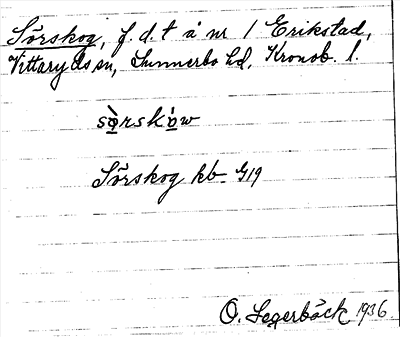 Sörskog, f.d.t å nr 1 Erikstad,
Vittaryds sn, Sunnerbo hd, Kronob. l.
sọ̀rskọ́w
Sörskog hb. G19
O. Segerbäck 1936.